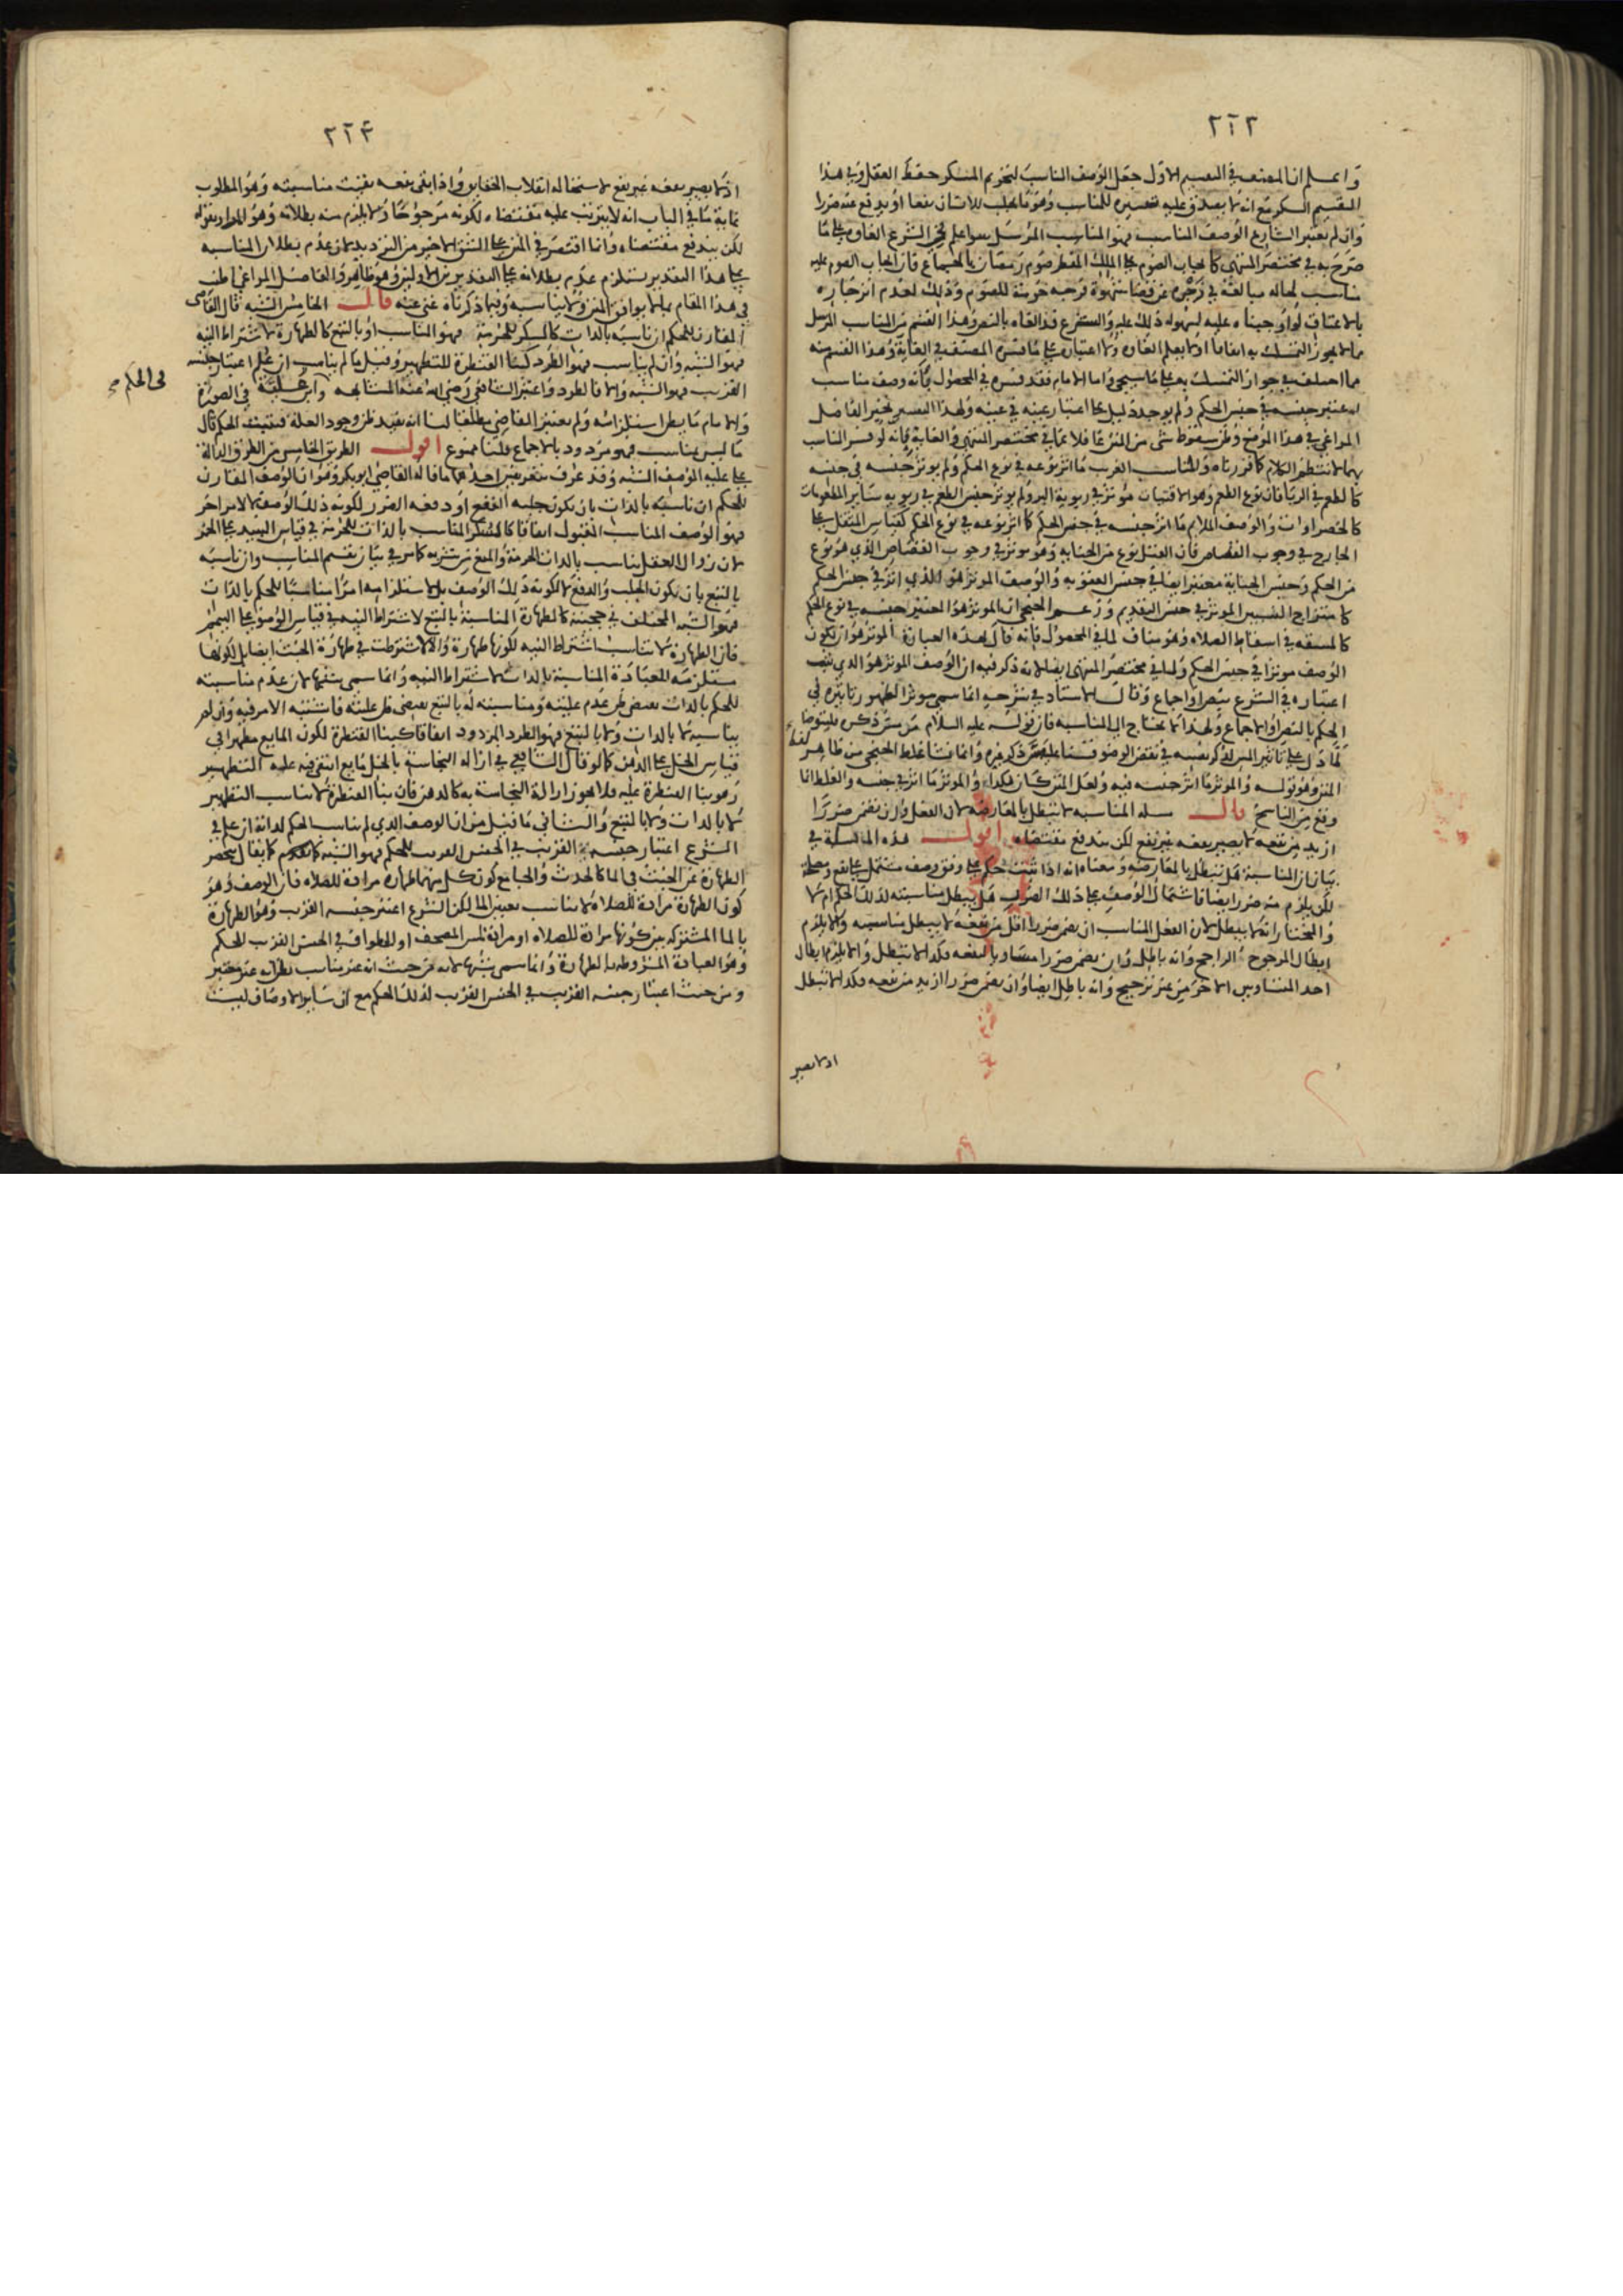 ٢٦٢
واعلم ان المصنف في التقسيم الاول جعل الوصف المناسب لتحريم المسكر حفظ العقل وفي هذا
التقسيم السكر مع انه لا يصدق عليه تفسيره للمناسب وهو ما يجلب للانسان نفعا او يدفع عنه ضررا
وان لم يعتبر الشارع الوصف المناسب فهو المناسب المرسل سوا علم في الشرع الغاوه على ما
صرح به في مختصر المنتهى كايجاب الصوم على الملك المفطر صوم رمضان بالجماع فان ايجاب الصوم عليه
مناسب لحاله مبالغة في زجره عن قضا شهوة فرجه حرمة للصوم وذلك لعدم انزجاره
بالاعتاق لو اوجبناه عليه لسهوله ذلك عليه والشرع قد الغاه بالنص وهذا القسم من المناسب المرسل
مما لا يجوز التمسك به اتفاقا او لا يعلم الغاوه ولا اعتباره على ما فسره المصنف في الغاية وهذا القسم منه
مما اختلف في جواز التمسك به على ما سيجي واما الامام فقد فسره في المحصول بانه وصف مناسب
اعتبر جنسه في جنس الحكم ولم يوجد دليل على اعتبار عينه في عينه ولهذا التفسير تحير الفاضل
المراغي في هذا الموضع وظن سقوط شي من المتن عما فلا عما في مختصر المنتهى والغاية فانه لو فسر المناسب
بهما لانتظم الكلام كما قررناه والمناسب الغريب ما اثر نوعه في نوع الحكم ولم يوثر جنسه في جنسه
كالطعم في الربا فان نوع الطعم وهو الاقتيات موثر في ربوية البر ولم يوثر جنس الطعم في ربويه سائر المطعومات
كالخضراوات والوصف الملايم ما اثر جنسه في جنس الحكم كما اثر نوعه في نوع الحكم كقياس المثقل على
الجارح في وجوب القصاص فان القتل نوع من الجنايه وهو موثر في وجوب القصاص الذي هو نوع
من الحكم وجنس الجناية معتبر ايضا في جنس العقوبه والوصف الموثر هو الذي اثر في جنس الحكم
كامتزاج النسبين الموثر في جنس التقديم وزعم الخنجي ان الموثر هو المعتبر جنسه في نوع الحكم
كالمشقه في اسقاط الصلاه وهو مناف لما في المحصول فانه قال بهذه العبارة الموثر هو ان يكون
الوصف موثرا في جنس الحكم ولما في مختصر المنتهى ايضا لانه ذكر فيه ان الوصف الموثر هو الذي ثبت
اعتباره في الشرع بنص او اجماع وقال الاستاد في شرحه انما سمى موثرا لظهور تاثيره في
الحكم بالنص او الاجماع ولهذا لا يحتاج الى المناسبه فان قوله عليه السلام من مس ذكره فليتوضا
لما دل على تاثير المس لذكر نفسه في نقض الوضو قسنا عليه مس ذكر غيره وانما نشا غلط الخنجي من ظاهر لفظ
المتن وهو قوله والموثر ما اثر جنسه فيه ولعل المتن كان هكذا والموثر ما اثر في جنسه والغلط انما
وقع من الناسخ قال مسله المناسبه لا تبطل بالمعارضه لان الفعل وان تضمن ضررا
ازيد من نفعه لا يصير نفعه غير نفع لكن يندفع مقتضاه اقول هذه المسلة في
بيان ان المناسبة هل تبطل بالمعارضه ومعناه انه اذا ثبت حكم على وفق وصف مشتمل على نفع ومصلحة
لكن يلزم منه ضرر ايضا فاشتمال الوصف على ذلك الضرر هل يبطل مناسبته لذلك الحكم ام لا
والمختار انه لا يبطل لان الفعل المناسب ان تضمن ضررا اقل من نفعه لا يبطل مناسبته والا يلزم
ابطال المرجوح الراجح وانه باطل وان تضمن ضررا مساويا لنفعه فكذا لا تبطل والا يلزم ابطال
احد المتساويين الاخر من غير ترجيح وانه باطل ايضا وان تضمن ضررا ازيد من نفعه فكذا لا تبطل
اذ لا يصير
٢٦٣
اذ لا يصير نفعه غير نفع لاستحاله انقلاب الحقايق واذا بقى نفعه بقيت مناسبته وهو المطلوب
غاية ما في الباب انه لا يترتب عليه مقتضاه لكونه مرجوحا ولا يلزم منه بطلانه وهو المراد بقوله
لكن يندفع مقتضاه وانما اقتصر في المتن على الشق الاخير من الترديد لان عدم بطلان المناسبه
على هذا التقدير يستلزم عدم بطلانه على التقديرين الاولين وهو ظاهر والفاضل المراغي اطنب
في هذا المقام بما لا يوافق المتن ولا يناسبه وفيما ذكرناه غنى عنه قال الخامس الشبه قال القاضى
المقارن للحكم ان ناسبه بالذات كالسكر للحرمة فهو المناسب او بالتبع كالطهارة لاشتراط النيه
فهو الشبه وان لم يناسب فهو الطرد كبنا القنطرة للتطهير وقيل ما لم يناسب ان علم اعتبار جنسه
القريب فهو الشبه والا فالطرد واعتبر الشافعي رضي الله عنه المشابهه وابن علية في الصورة
في الحكم
والامام ما يظن استلزامه ولم يعتبر القاضي مطلقا لنا انه يفيد ظن وجود العلة فيثبت الحكم قال
ما ليس بمناسب فهو مردود بالاجماع قلنا ممنوع اقول الطريق الخامس من الطرق الدالة
على عليه الوصف الشبه وقد عرف بتعريفين احدهما ما قاله القاضي ابو بكر وهو ان الوصف المقارن
للحكم ان ناسبه بالذات بان يكون جلبه النفع او دفعه الضرر لكونه ذلك الوصف لا لامر اخر
فهو الوصف المناسب المقبول اتفاقا كالمسكر المناسب بالذات للحرمة في قياس النبيذ على الخمر
لان زوال العقل يناسب بالذات الحرمة والمنع من شربه كما مر في بيان تقسيم المناسب وان ناسبه
بالتبع بان يكون الجلب والدفع لا لكونه ذلك الوصف بل لاستلزامه امرا مناسبا للحكم بالذات
فهو الشبه المختلف في حجيته كالطهارة المناسبة بالتبع لاشتراط النيه في قياس الوضو على التيمم
فان الطهارة لا تناسب اشتراط النيه لكونها طهارة والا لاشترطت في طهارة الخبث ايضا بل لكونها
مستلزمه للعبادة المناسبة بالذات لاشتراط النيه وانما سمى شبها لان عدم مناسبته
للحكم بالذات يقتضي ظن عدم عليته ومناسبته له بالتبع يقتضي ظن عليته فاشتبه الامر فيه وان لم
يناسبه لا بالذات ولا بالتبع فهو الطرد المردود اتفاقا كبنا القنطرة لكون المايع مطهرا في
قياس الخل على الدهن كما لو قال الشافعي في ازاله النجاسة بالخل مايع انتفى فيه عليه التطهير
وهو بنا القنطرة عليه فلا يجوز ازالة النجاسة به كالدهن فان بنا القنطرة لا يناسب التطهير
لا بالذات ولا بالتبع والثاني ما قيل من ان الوصف الذي لم يناسب الحكم لذاته ان علم في
الشرع اعتبار جنسه القريب في الجنس القريب للحكم فهو الشبه كما يقال يختص
الطهارة عن الخبث في الما كالحدث والجامع كون كل منهما طهارة مرادة للصلاه فان الوصف وهو
كون الطهارة مرادة للصلاة لا يناسب تعيين الما لكن الشرع اعتبر جنسه القريب وهو الطهارة
بالما المشتركه بين كونها مرادة للصلاه او مرادة لمس المصحف او للطواف في الجنس القريب للحكم
وهو العبادة المشروطه بالطهارة وانما سمى شبها لانه من حيث انه غير مناسب يظن انه غير معتبر
ومن حيث اعتبار جنسه القريب في الجنس القريب لذلك الحكم مع ان سائر الاوصاف ليست